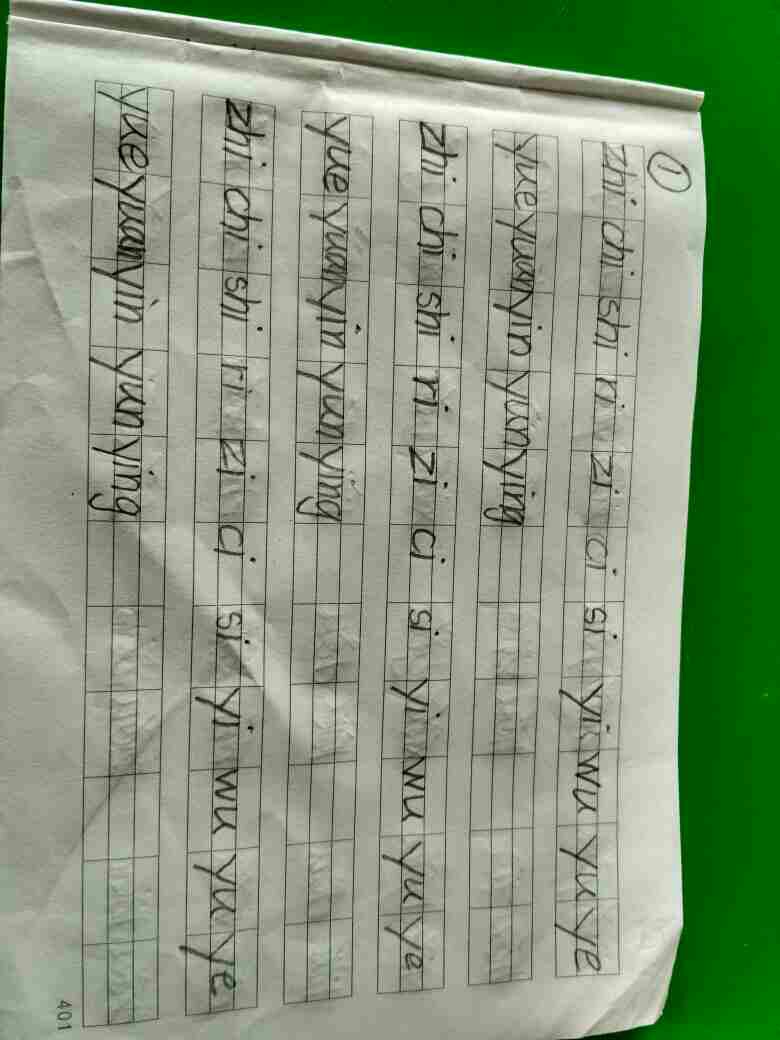 ①
zhi chi shi ri zi ci si yi wu yu ye
yue yuan yin yun ying
zhi chi shi ri zi ci si yi wu yu ye
yue yuan yin yun ying
zhi chi shi ri zi ci si yi wu yu ye
yue yuan yin yun ying
401